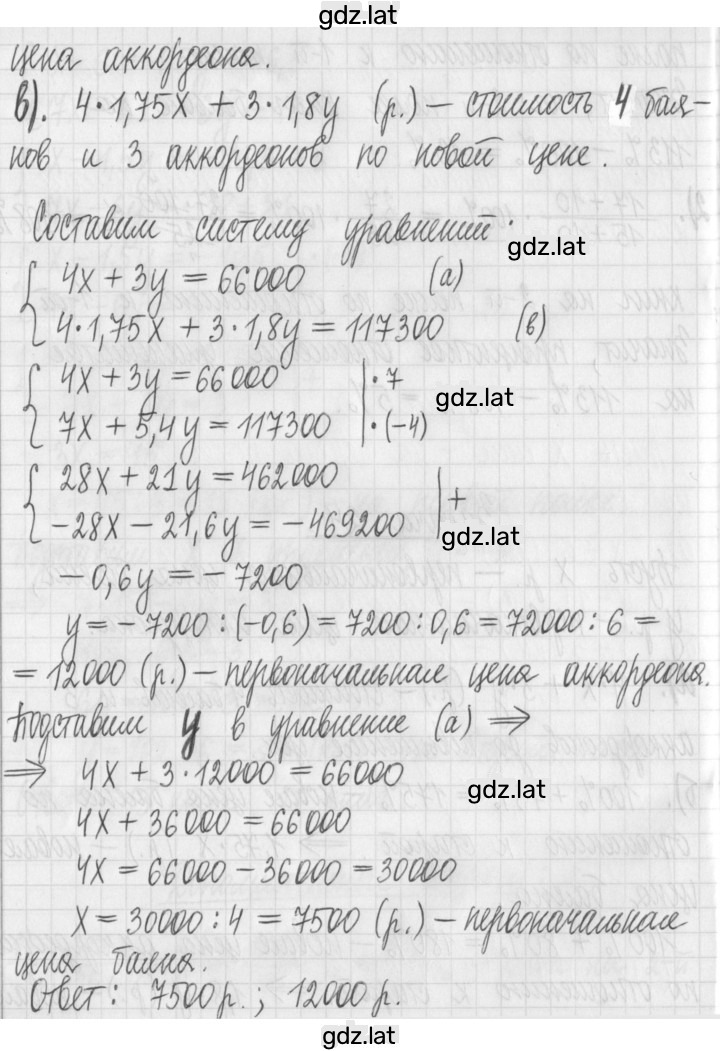 gdz.lat
цена аккордеона.
в). 4·1,75x + 3·1,8y (р.) — стоимость 4 бая-
нов и 3 аккордеонов по новой цене.
Составим систему уравнений:
gdz.lat
4x + 3y = 66000 (а)
4·1,75x + 3·1,8y = 117300 (в)
4x + 3y = 66000 | ·7
gdz.lat
7x + 5,4y = 117300 | ·(-4)
28x + 21y = 462000
-28x - 21,6y = -469200 | +
gdz.lat
-0,6y = -7200
y = -7200 : (-0,6) = 7200 : 0,6 = 72000 : 6 =
= 12000 (р.) — первоначальная цена аккордеона.
Подставим y в уравнение (а) ⇒
⇒ 4x + 3·12000 = 66000
gdz.lat
4x + 36000 = 66000
4x = 66000 - 36000 = 30000
x = 30000 : 4 = 7500 (р.) — первоначальная
цена баяна.
Ответ: 7500 р.; 12000 р.
gdz.lat